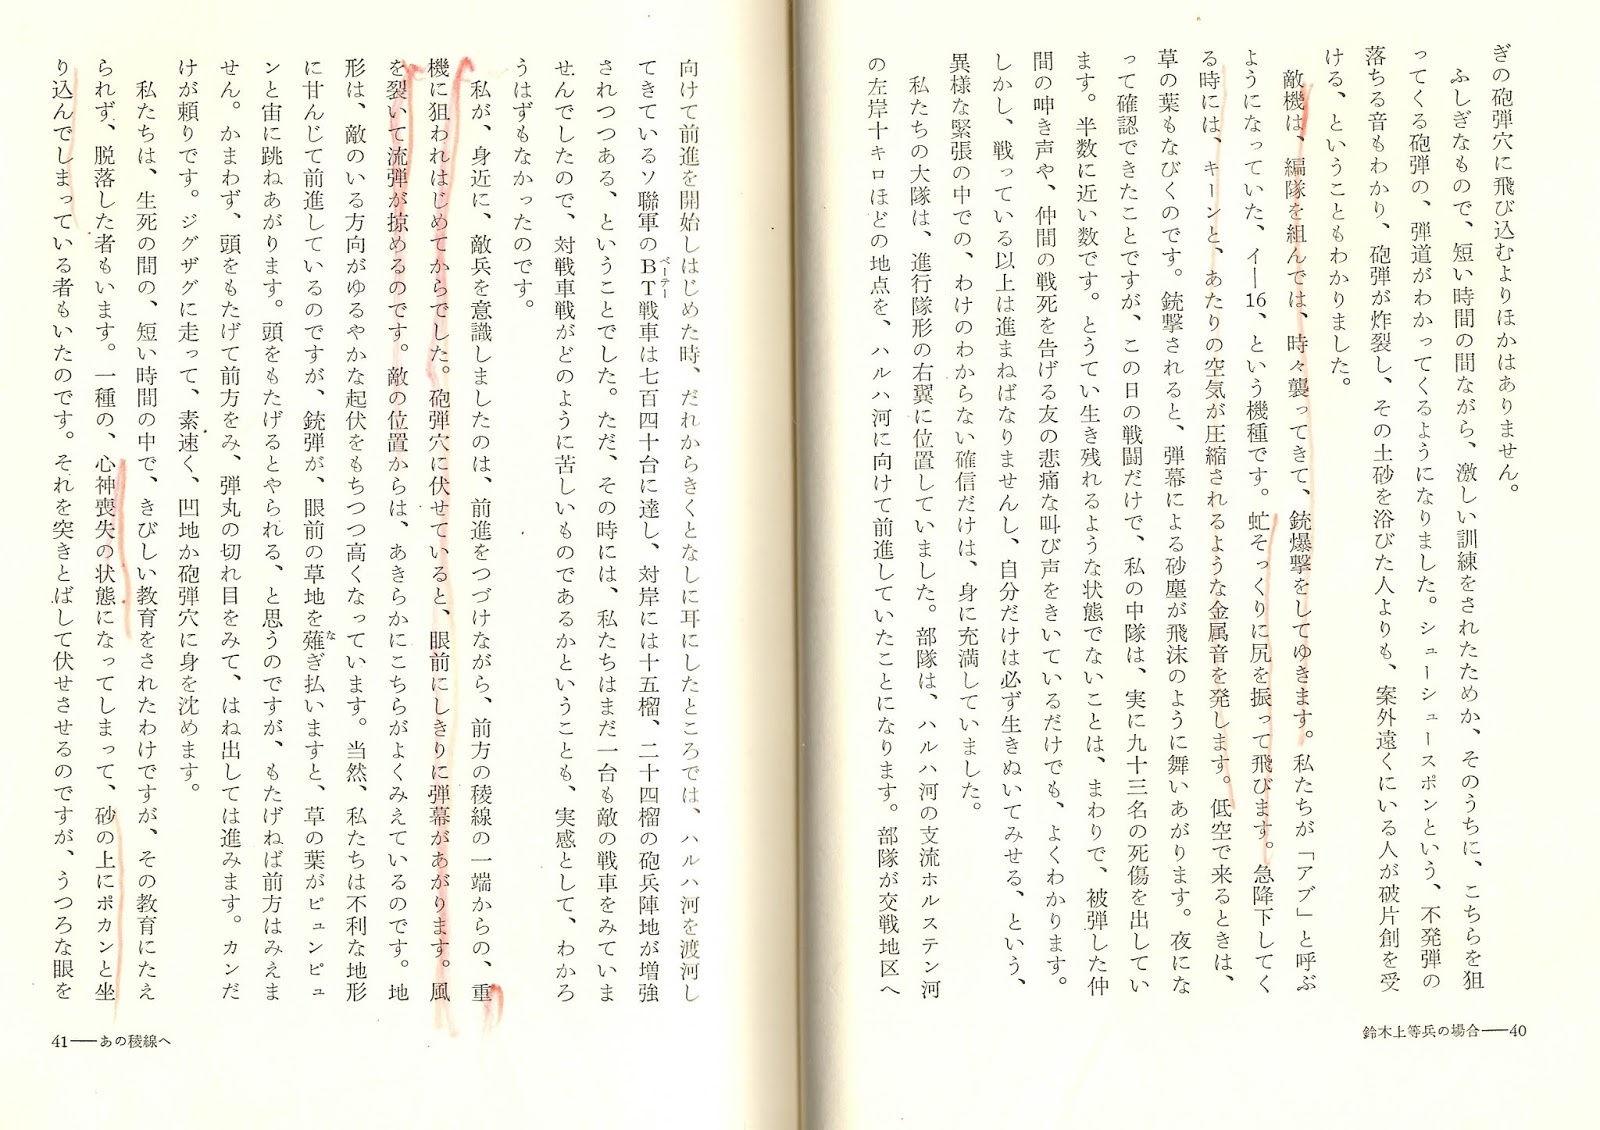 ぎの砲弾穴に飛び込むよりほかはありません。
ふしぎなもので、短い時間の間ながら、激しい訓練をされたためか、そのうちに、こちらを狙
ってくる砲弾の、弾道がわかってくるようになりました。シューシュースポンという、不発弾の
落ちる音もわかり、砲弾が炸裂し、その土砂を浴びた人よりも、案外遠くにいる人が破片創を受
ける、ということもわかりました。
敵機は、編隊を組んでは、時々襲ってきて、銃爆撃をしてゆきます。私たちが「アブ」と呼ぶ
ようになっていた、イ―16、という機種です。虻そっくりに尻を振って飛びます。急降下してく
る時には、キーンと、あたりの空気が圧縮されるような金属音を発します。低空で来るときは、
草の葉もなびくのです。銃撃されると、弾幕による砂塵が飛沫のように舞いあがります。夜にな
って確認できたことですが、この日の戦闘だけで、私の中隊は、実に九十三名の死傷を出してい
ます。半数に近い数です。とうてい生き残れるような状態でないことは、まわりで、被弾した仲
間の呻き声や、仲間の戦死を告げる友の悲痛な叫び声をきいているだけでも、よくわかります。
しかし、戦っている以上は進まねばなりませんし、自分だけは必ず生きぬいてみせる、という、
異様な緊張の中での、わけのわからない確信だけは、身に充満していました。
私たちの大隊は、進行隊形の右翼に位置していました。部隊は、ハルハ河の支流ホルステン河
の左岸十キロほどの地点を、ハルハ河に向けて前進していたことになります。部隊が交戦地区へ
鈴木上等兵の場合――40
向けて前進を開始しはじめた時、だれからきくとなしに耳にしたところでは、ハルハ河を渡河し
てきているソ聯軍のBT戦車は七百四十台に達し、対岸には十五榴、二十四榴の砲兵陣地が増強
ベーテー
されつつある、ということでした。ただ、その時には、私たちはまだ一台も敵の戦車をみていま
せんでしたので、対戦車戦がどのように苦しいものであるかということも、実感として、わかろ
うはずもなかったのです。
私が、身近に、敵兵を意識しましたのは、前進をつづけながら、前方の稜線の一端からの、重
機に狙われはじめてからでした。砲弾穴に伏せていると、眼前にしきりに弾幕があがります。風
を裂いて流弾が掠めるのです。敵の位置からは、あきらかにこちらがよくみえているのです。地
形は、敵のいる方向がゆるやかな起伏をもちつつ高くなっています。当然、私たちは不利な地形
に甘んじて前進しているのですが、銃弾が、眼前の草地を薙ぎ払いますと、草の葉がピュンピュ
な
ンと宙に跳ねあがります。頭をもたげるとやられる、と思うのですが、もたげねば前方はみえま
せん。かまわず、頭をもたげて前方をみ、弾丸の切れ目をみて、はね出しては進みます。カンだ
けが頼りです。ジグザグに走って、素速く、凹地か砲弾穴に身を沈めます。
私たちは、生死の間の、短い時間の中で、きびしい教育をされたわけですが、その教育にたえ
られず、脱落した者もいます。一種の、心神喪失の状態になってしまって、砂の上にポカンと坐
り込んでしまっている者もいたのです。それを突きとばして伏せさせるのですが、うつろな眼を
41――あの稜線へ